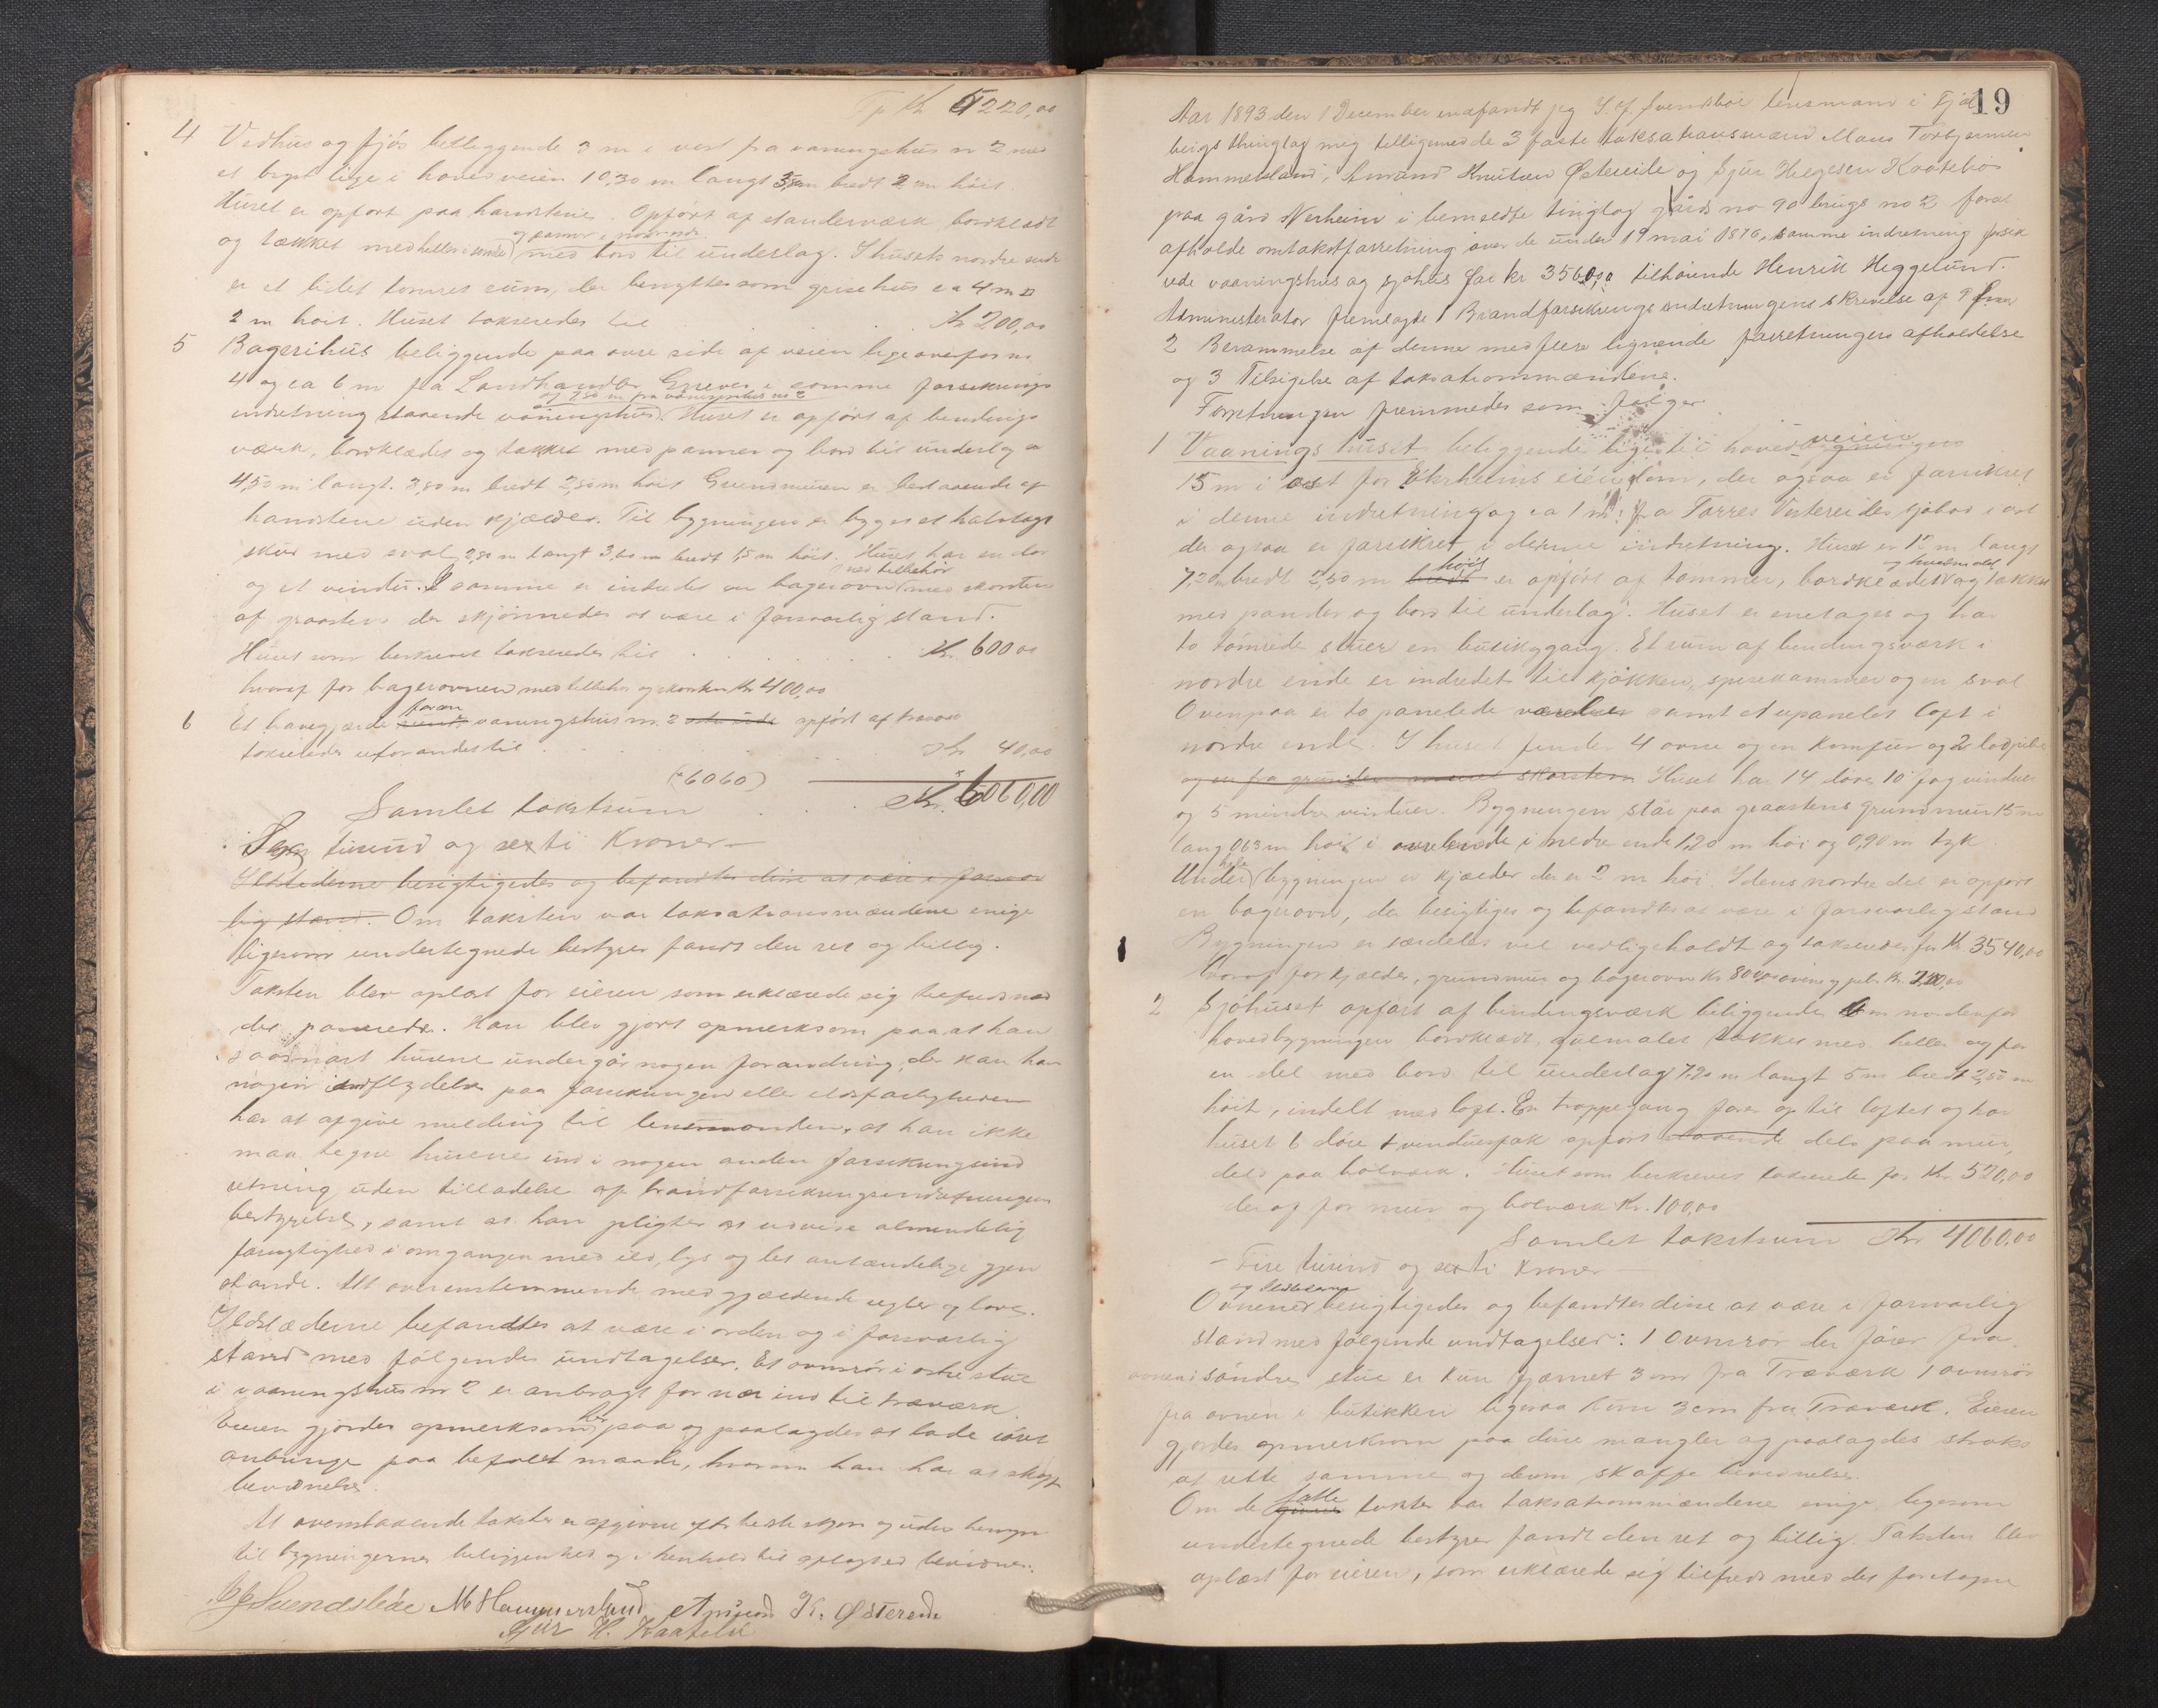 Tp Kr 5220,00
4 Vedhus og fjøs beliggende 3 m i vest fra vaaningshus nr 2 med
et bygt lige i hovedveien 10,30 m langt 3,80 m bredt 2 m höit.
Huset er opført paa haandstene. Opført af standerværk, bordklædt
og tækket med heller i söndre og panner i nordre ende med bord til underlag. I husets nordre ende
er et lidet tømret rum, der benyttes som grisehus ca 4 m
2 m höit. Huset takseredes til Kr 200,00
5 Bagerihus beliggende paa øvre side af veien lige overfor nr
4 og ca 6 m fra Landhandler Greves i samme forsikrings
indretning staaende vaaningshus og 7,50 m fra vaaningshus no 2. Huset er opført af bindings
værk, bordklædt og tækket med panner og bord til underlag
4,50 m langt. 3,80 m bredt 2,50 m höit Grundmuren er bestaaende af
haandstene uden kjælder. Til bygningen er bygget et halvtags
skur med sval 2,80 m langt 3,60 m bredt 1,5 m höit. Huset har en dør
og et vindu. I samme er indredet en bagerovn med tilbehör med skorsten
af graasten der skjönnedes at være i forsvarlig stand.
Huset som beskrevet takseredes til Kr. 600,00
hvoraf for bagerovnen med tilbehør og skorsten Kr 400,00
6 Et havegjærde foran vaaningshus nr. 2 opført af træ
takseredes uforandret til Kr 40,00
(6060)
Samlet takstsum Kr. 6060,00
Sex tusend og sexti Kroner —
Ildstederne besigtigedes og befandtes disse at være i forsvar
lig stand. Om taksten var taksationsmændene enige
ligesom undertegnede bestyrer fandt den ret og billig.
Taksten blev oplæst for eieren som erklærede sig tilfreds med
det passerede. Han blev gjort opmerksom paa at han
saasnart husene undergår nogen forandring, der kan ha
nogen indflydelse paa forsikringen eller ildsfarligheden
har at afgive melding til lensmanden, at han ikke
maa tegne husene ind i nogen anden forsikringsind
retning uden tilladelse af brandforsikringsindretningens
bestyrelse, samt at han pligter at udvise almindelig
forsigtighed i omgangen med ild, lys og let antændelige gjen
stande. Alt overensstemmende med gjældende regler og love.
Ildstæderne befandtes at være i orden og i forsvarlig
stand med følgende undtagelser. Et ovnsrör i östre stue
i vaaningshus nr 2 er anbragt for nær ind til træværk.
Eieren gjordes opmerksom her paa og paalagdes at lade röret
anbringe paa befalet maade, hvorom han har at skaffe
bevidnelse.
At ovenstaaende takster er afgivne efter bedste skjøn og uden hensyn
til bygningernes beliggenhed og i henhold til aflagt ed bevidnes.
J J Svendsböe M Hammersland Amund K. Østereide
Sjur H. Kaatebö
19
Aar 1893 den 1 December indfandt jeg J. J. Svendsböe lensmand i Fjæl
bergs thinglag mig tilligemed de 3 faste taksationsmænd Mons Torbjørnsen
Hammersland, Amund Knutsen Østereide og Sjur Helgesen Kaatebö
paa gård Nerheim i bemeldte tinglag gårds no 90 brugs no 2 for at
afholde omtakstforretning over de under 19 mai 1876 i samme indretning forsik
rede vaaningshus og sjöhus for kr 3560,00 tilhörende Henrik Heggelund.
Administrator fremlagde 1 Brandforsikrings indretningens skrivelse af
2 Berammelse af denne med flere lignende forretningers afholdelse
og 3 Tilsigelse af taksationsmændene.
Forretningen fremmedes som følger
1 Vaaningshuset beliggende lige til hovedveien
15 m i öst for Ekrheims eiendom, der ogsaa er forsikret
i denne indretning og ca 1 m fra Torres Østereides sjöbod i öst
der ogsaa er forsikret i denne indretning. Huset er 12 m langt
7,20 m bredt 2,50 m höit er opført af tømmer, bordklædt og hvidmalet og tækket
med pander og bord til underlag. Huset er enetages og har
to tömrede stuer en butik og gang. Et rum af bindingsværk i
nordre ende er indredet til kjökken, spisekammer og en sval
Ovenpaa er to panelede værelser samt et upanelet loft i
nordre ende. I huset findes 4 ovne og en Komfur og 2 lodpiber
og en fra grunden muret skorsten Huset har 14 döre 10 fag vinduer
og 5 mindre vinduer. Bygningen står paa graastens grundmur 15 m
lang 0,63 m höi i övre ende i nedre ende 1,20 m höi og 0,90 m tyk
Under hele bygningen er kjælder der er 2 m höi. I dens nordre del er opført
en bagerovn, der besigtiges og befandtes at være i forsvarlig stand
Bygningen er særdeles vel vedligeholdt og takseredes for Kr 3540,00
hvoraf for kjælder, grundmur og bagerovn Kr 800,00 ovne og piber Kr. 200,00
2 Sjöhuset opført af bindingsværk beliggende 6 m nordenfor
hovedbygningen bordklædt, gulmalet tækket med heller og for
en del med bord til underlag 7,20 m langt 5 m bredt 2,50 m
höit, indelt med loft. En trappegang fører op til loftet og har
huset 6 döre 1 vinduesfak opført staaende dels paa mur,
dels paa bolværk. Huset som beskrevet takseredes for Kr 520,00
deraf for mur og bolværk Kr. 100,00
Samlet takstsum Kr 4060,00
— Fire tusind og sexti Kroner —
Ovnene og Ildstederne besigtigedes og befandtes disse at være i forsvarlig
stand med følgende undtagelser: 1 Ovnsrör der förer fra
ovnen i söndre stue er kun fjernet 3 cm fra Træværk 1 ovnsrör
fra ovnen i butikken ligesaa kun 3 cm fra Træværk. Eieren
gjordes opmerksom paa disse mangler og paalagdes straks
at rette samme og derom skaffe bevidnelse.
Om de satte takster var taksationsmændene enige, ligesom
undertegnede bestyrer fandt den ret og billig. Taksten blev
oplæst for eieren, som erklærede sig tilfreds med det foretagne